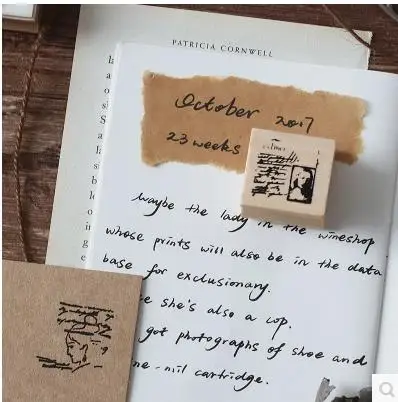 PATRICIA CORNWELL
October 2017
23 weeks
maybe the lady in the wineshop
whose prints will also be in the data
base for exclusionary.
e she's also a cop.
got photographs of shoe and
ne-mil cartridge.